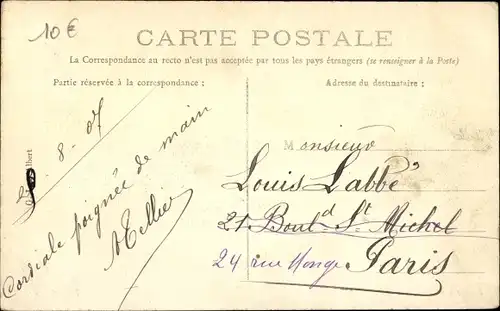 10€
CARTE POSTALE
La Correspondance au recto n'est pas acceptée par tous les pays étrangers (se renseigner à la Poste)
Partie réservée à la correspondance :
Adresse du destinataire :
8-07
Cordiale poignée de main
Mellier
Monsieur
Louis Labbé
21 Boul^d S^t Michel
24 rue Monge Paris